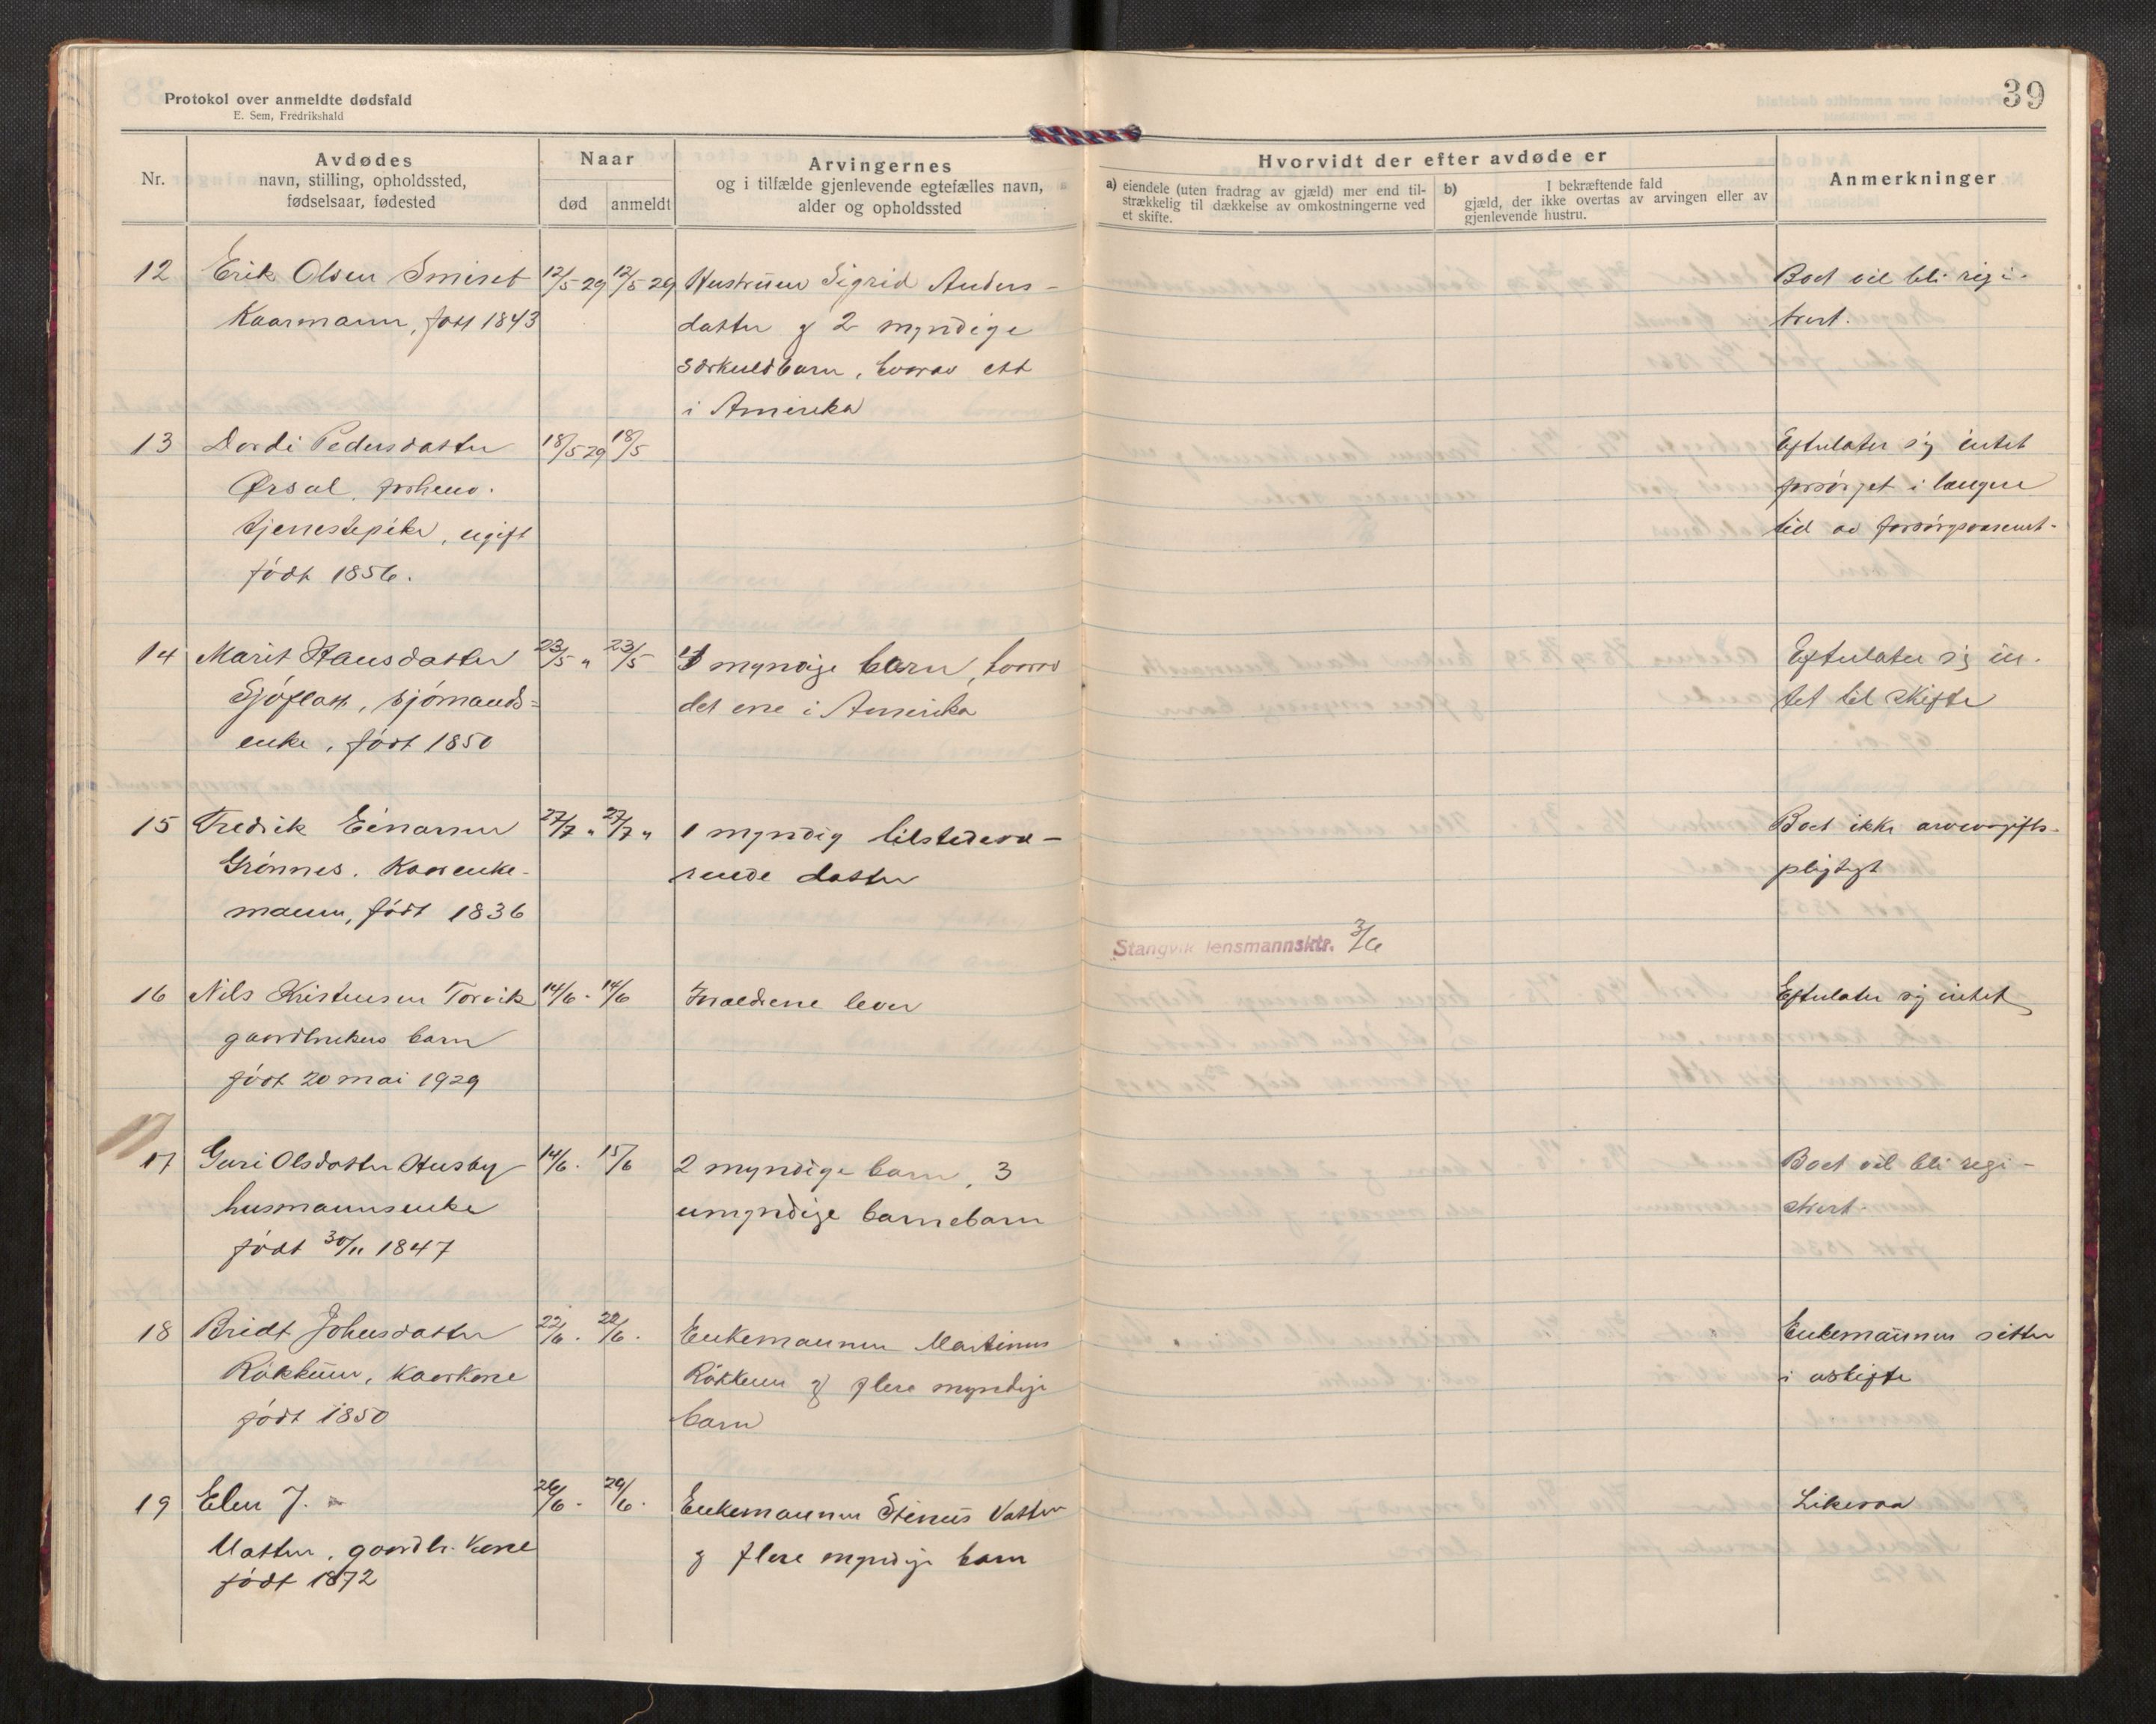 39
Protokol over anmeldte dødsfald
E. Sem, Fredrikshald
Nr.
Avdødes
navn, stilling, opholdssted,
fødselsaar, fødested
Naar
død
anmeldt
Arvingernes
og i tilfælde gjenlevende egtefælles navn,
alder og opholdssted
Hvorvidt der efter avdøde er
a) eiendele (uten fradrag av gjæld) mer end til-
strækkelig til dækkelse av omkostningerne ved
et skifte.
b) I bekræftende fald
gjæld, der ikke overtas av arvingen eller av
gjenlevende hustru.
Anmerkninger
12 Erik Olsen Smiset 12/5-29 12/5-29 Hustruen Sigrid Anders- Boet vil bli regi-
Kaarmann, født 1843 datter og 2 myndige trert.
særkuldbarn, hvorav ett
i Amerika
13 Dordi Pedersdatter 18/5 29 18/5 Efterlater sig intet
Ørsal, forhenv. forsørget i længere
tjenestepike, ugift tid av forsorgsvæsenet.
født 1856.
14 Marit Hansdatter 23/5 " 23/5 myndige barn, hvorav Efterlater sig in-
Sjøflott, sjømands- det ene i Amerika tet til skifte
enke, født 1850
15 Fredrik Einarsen 27/7 " 27/7 " 1 myndig tilstedevæ- Boet ikke arveavgifts-
Grønnes. Kaarenke- rende datter pligtigt
mann, født 1836
Stangvik lensmannsktr. 3/6
16 Nils Kristensen Torvik 14/6 - 14/6 Foreldrene lever Efterlater sig intet
gaardbrukers barn
født 20 mai 1929
17
17 Guri Olsdatter Husby 14/6 - 15/6 2 myndige barn, 3 Boet vil bli regi-
husmannsenke umyndige barnebarn strert.
født 30/11 1847
18 Bridt Johnsdatter 22/6 - 22/6 - Enkemannen Martinus Enkemannen sitter
Røkkum, kaarkone Røkkum og flere myndige i uskifte
født 1850 barn
19 Elen J. 26/6 - 29/6 - Enkemannen Stenus Vatten Likesaa
Vatten, gaardbr. kone og flere myndige barn
født 1872